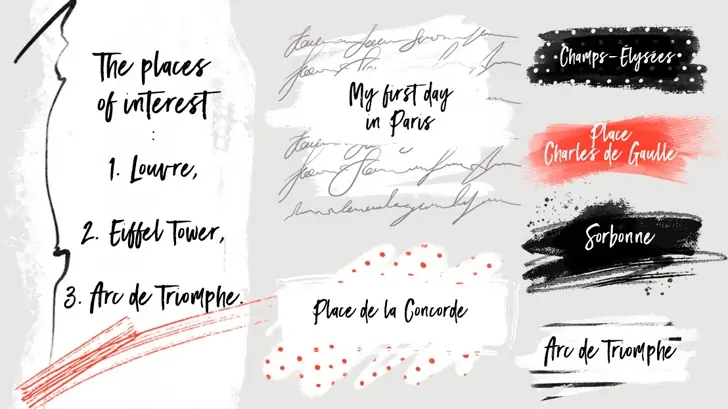 The places
of interest
:
1. Louvre,
2. Eiffel Tower,
3. Arc de Triomphe.
My first day
in Paris
Place de la Concorde
Champs-Élysées
Place
Charles de Gaulle
Sorbonne
Arc de Triomphe